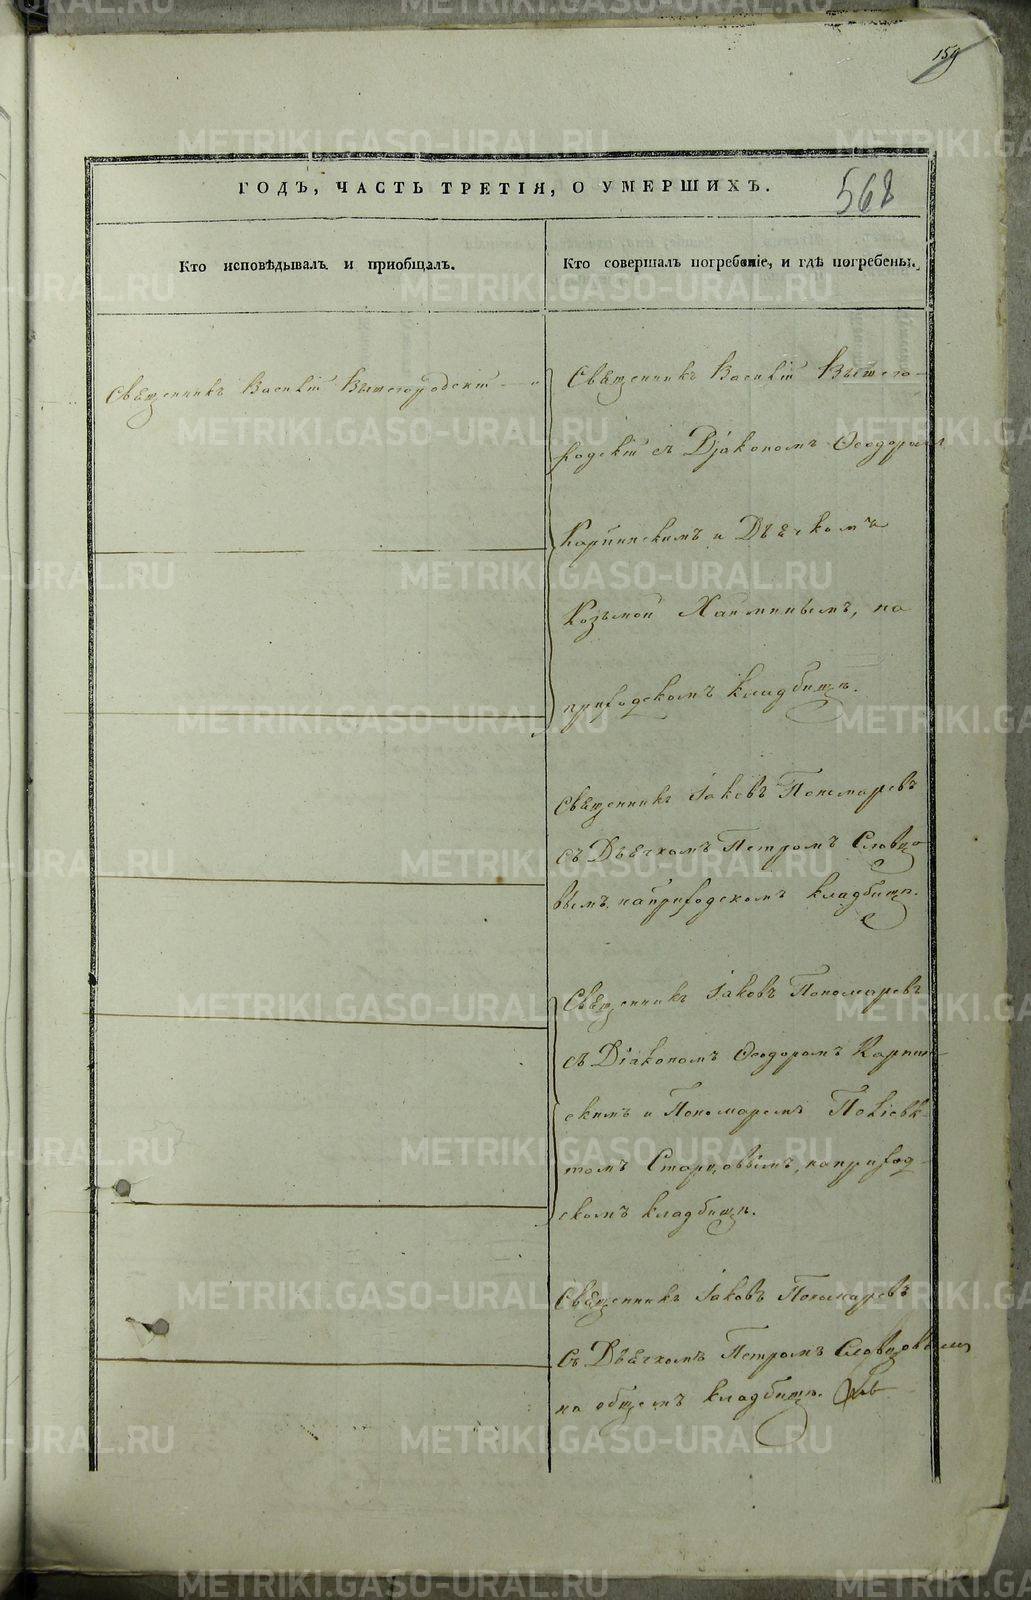 159
ГОДЪ, ЧАСТЬ ТРЕТІЯ, О УМЕРШИХЪ.
568
Кто исповѣдывалъ и приобщалъ.
Кто совершалъ погребеніе, и гдѣ погребены.
Священникъ Василій Вышегородскій
Священникъ Василій Вышего-
родскій съ Діакономъ Ѳеодоромъ
Карпинскимъ и Дьячкомъ
Козьмой Хаиминымъ, на
приходскомъ кладбищѣ.
Священникъ Іаковъ Пономаревъ
съ Дьячкомъ Петромъ Словцо-
вымъ, на приходскомъ кладбищѣ.
Священникъ Іаковъ Пономаревъ
съ Діакономъ Ѳеодоромъ Карпин-
скимъ и Пономаремъ Поліевк-
томъ Старцовымъ, на приход-
скомъ кладбищѣ.
Священникъ Іаковъ Пономаревъ
съ Дьячкомъ Петромъ Словцовымъ
на общемъ кладбищѣ.
METRIKI.GASO-URAL.RU